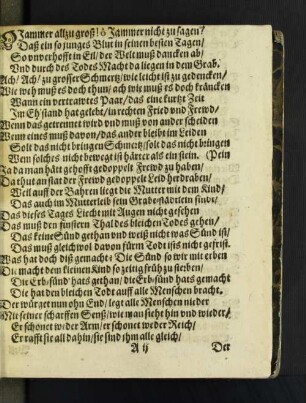 O Jammer allzu groß! ô Jammer nicht zu sagen?
Daß ein so junges Blut in seinen besten Tagen/
So unverhofft in Eil/ der Welt muß dancken ab/
Vnd durch des Todes Macht da liegen in dem Grab.
Ach/ Ach/ zu grosser Schmertz/ wie leicht ist zu gedencken/
Wie weh muß es doch thun/ ach wie muß es doch kräncken
Wann ein vertrawtes Paar/ das eine kurtze Zeit
Im Eh'stand hat gelebt/ in rechten Fried und Frewd/
Wenn das getrennet wird und muß von ander scheiden
Wenn eines muß davon/ das ander bleibt im Leiden
Solt das nicht bringen Schmertz/ solt das nicht bringen
Wem solches nicht bewegt ist härter als ein stein. (Pein
Ja da man hätt gehofft gedoppelt Frewd zu haben/
Da thut an stat der Frewd gedoppelt Leid herdraben/
Weil auff der Bahren liegt die Mutter mit dem Kind/
Das auch im Mutterleib sein Grabestädtlein findt/
Das dieses Tages Liecht mit Augen nicht gesehen
Das muß den finstern Thal des bleichen Todes gehen/
Das keine Sünd gethan und weiß nicht was Sünd ist/
Das muß gleichwol davon fürm Todt ists nicht gefrist.
Was hat doch diß gemacht? Die Sünd so wir mit erben
Die macht dem kleinen Kind so zeitig früh zu sterben/
Die Erb-sünd hats gethan/ die Erb-sünd hats gemacht
Die hat den bleichen Todt auff alle Menschen bracht.
Der würget nun ohn End/ legt alle Menschen nieder
Mit seiner scharffen Senß/ wie man sieht hin und wieder/
Er schonet weder Arm/ er schonet weder Reich/
Er rafft sie all dahin/ sie sind ihm alle gleich/
A ij
Der